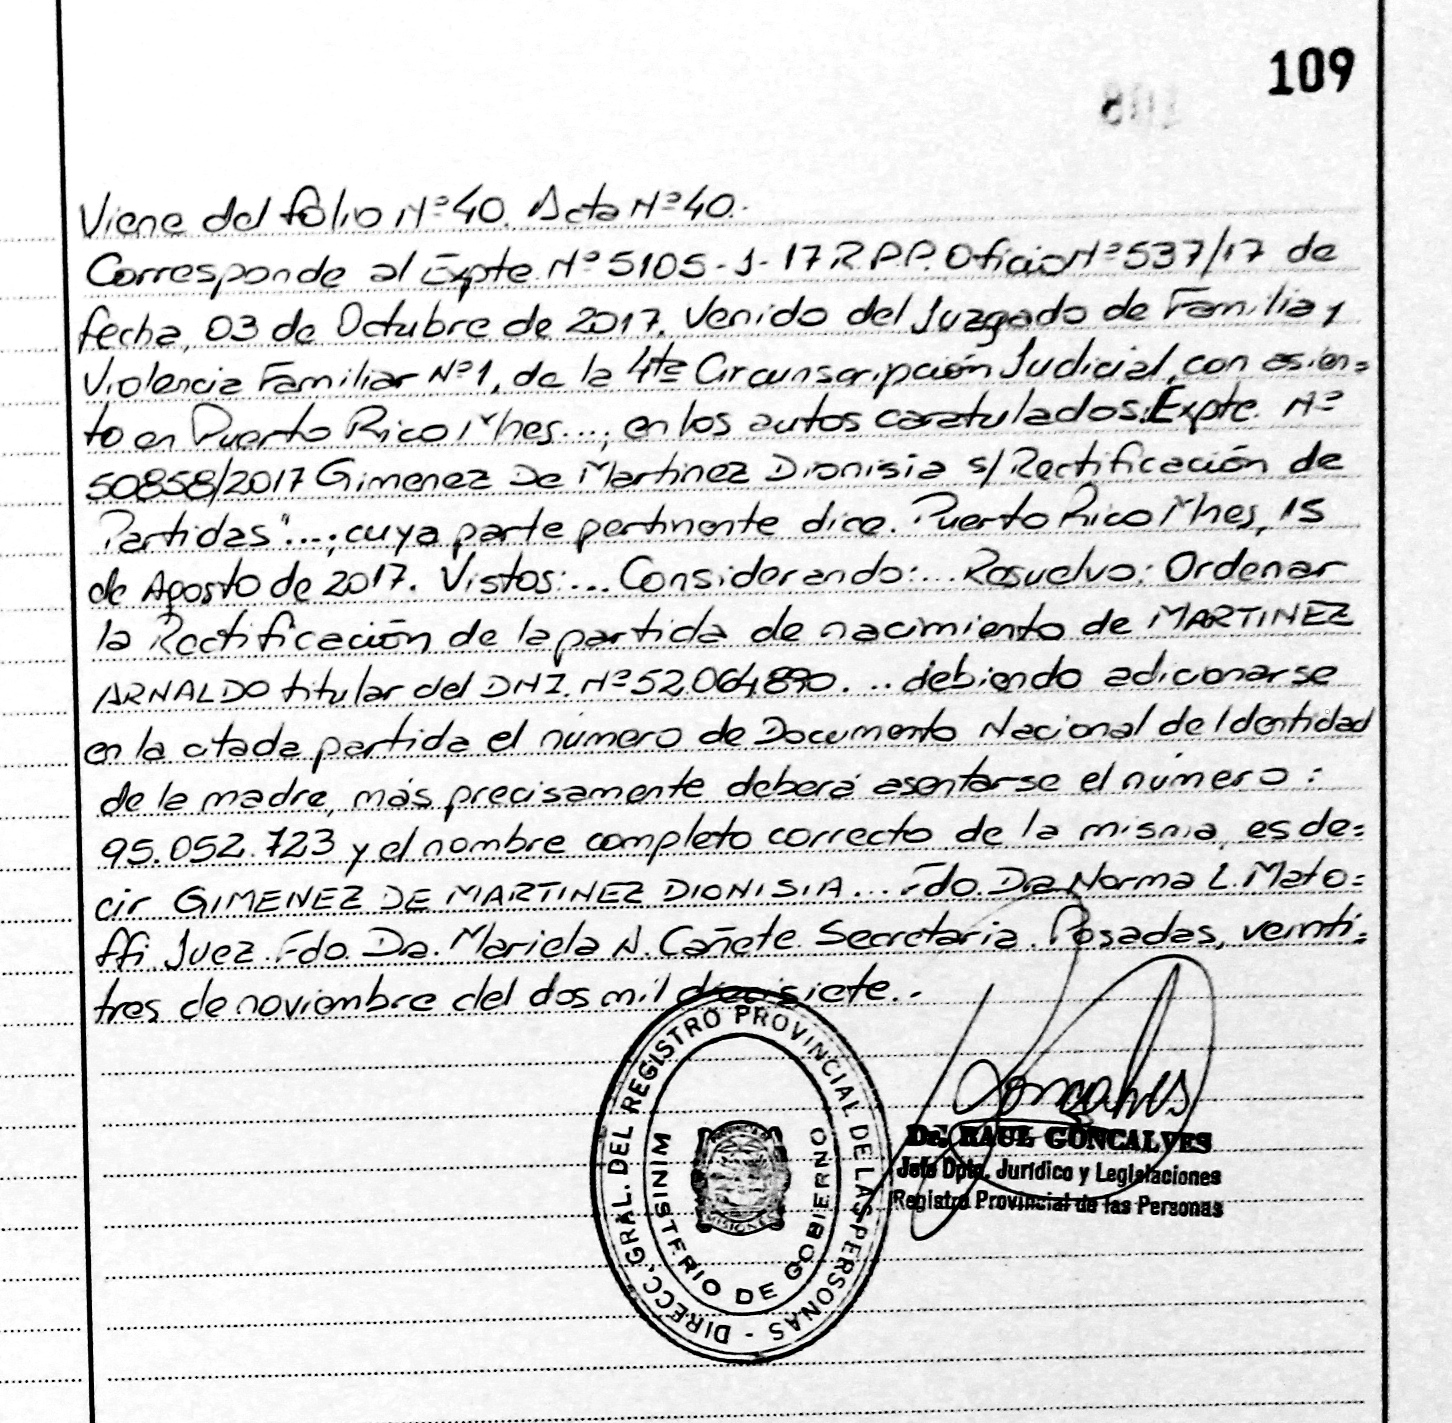 109
Viene del folio Nº 40. Acta Nº 40.-
Corresponde al Expte Nº 5105-J-17 R.P.P. Oficio Nº 537/17 de
fecha, 03 de Octubre de 2017. Venido del Juzgado de Familia y
Violencia Familiar Nº 1, de la 4ta Circunscripción Judicial, con asien=
to en Puerto Rico Mnes...; en los autos caratulados: Expte. Nº
50858/2017 Gimenez De Martinez Dionisia s/ Rectificación de
Partidas"...; cuya parte pertinente dice. Puerto Rico Mnes, 15
de Agosto de 2017. Vistos:... Considerando:... Resuelvo: Ordenar
la Rectificación de la partida de nacimiento de MARTINEZ
ARNALDO titular del DNI. Nº 52.064.890. ... debiendo adicionarse
en la citada partida el número de Documento Nacional de Identidad
de la madre, más precisamente deberá asentarse el número:
95.052.723 y el nombre completo correcto de la misma, es de=
cir GIMENEZ DE MARTINEZ DIONISIA... Fdo. Dra Norma L. Mato=
ffi Juez. Fdo. Dra. Mariela A. Cañete. Secretaria. Posadas, veinti=
tres de noviembre del dos mil diecisiete.-
DIRECC. GRAL. DEL REGISTRO PROVINCIAL DE LAS PERSONAS -
MINISTERIO DE GOBIERNO
MISIONES
Goncalves
Dr. RAUL GONCALVES
Jefe Dpto. Jurídico y Legislaciones
Registro Provincial de las Personas